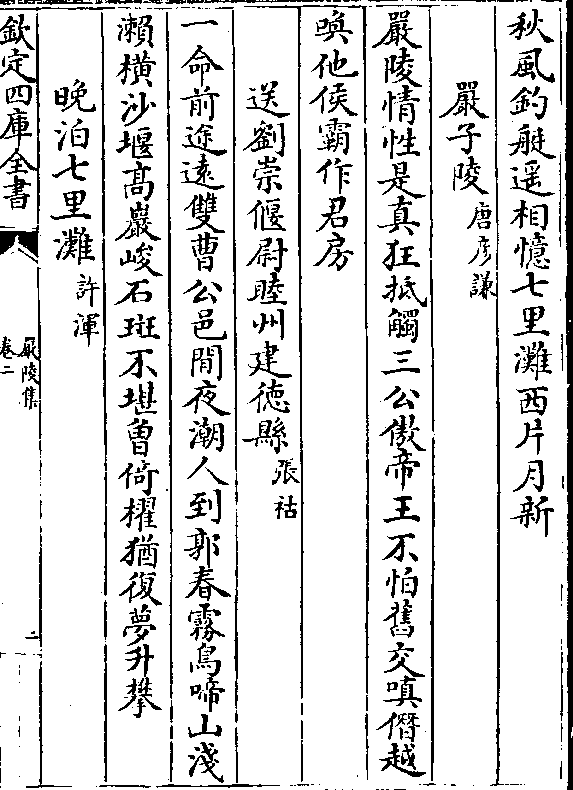 秋風釣艇遥相憶七里灘西片月新
嚴子陵 唐彦謙
嚴陵情性是真狂抵觸三公傲帝王不怕舊交嗔僭越
喚他侯霸作君房
送劉崇偃尉睦州建徳縣 張祜
一命前途遠雙曹公邑閒夜潮人到郭春霧鳥啼山淺
瀨横沙堰髙巖峻石斑不堪曽倚櫂猶復夢升攀
晚泊七里灘 許渾
欽定四庫全書
嚴陵集
卷二
二